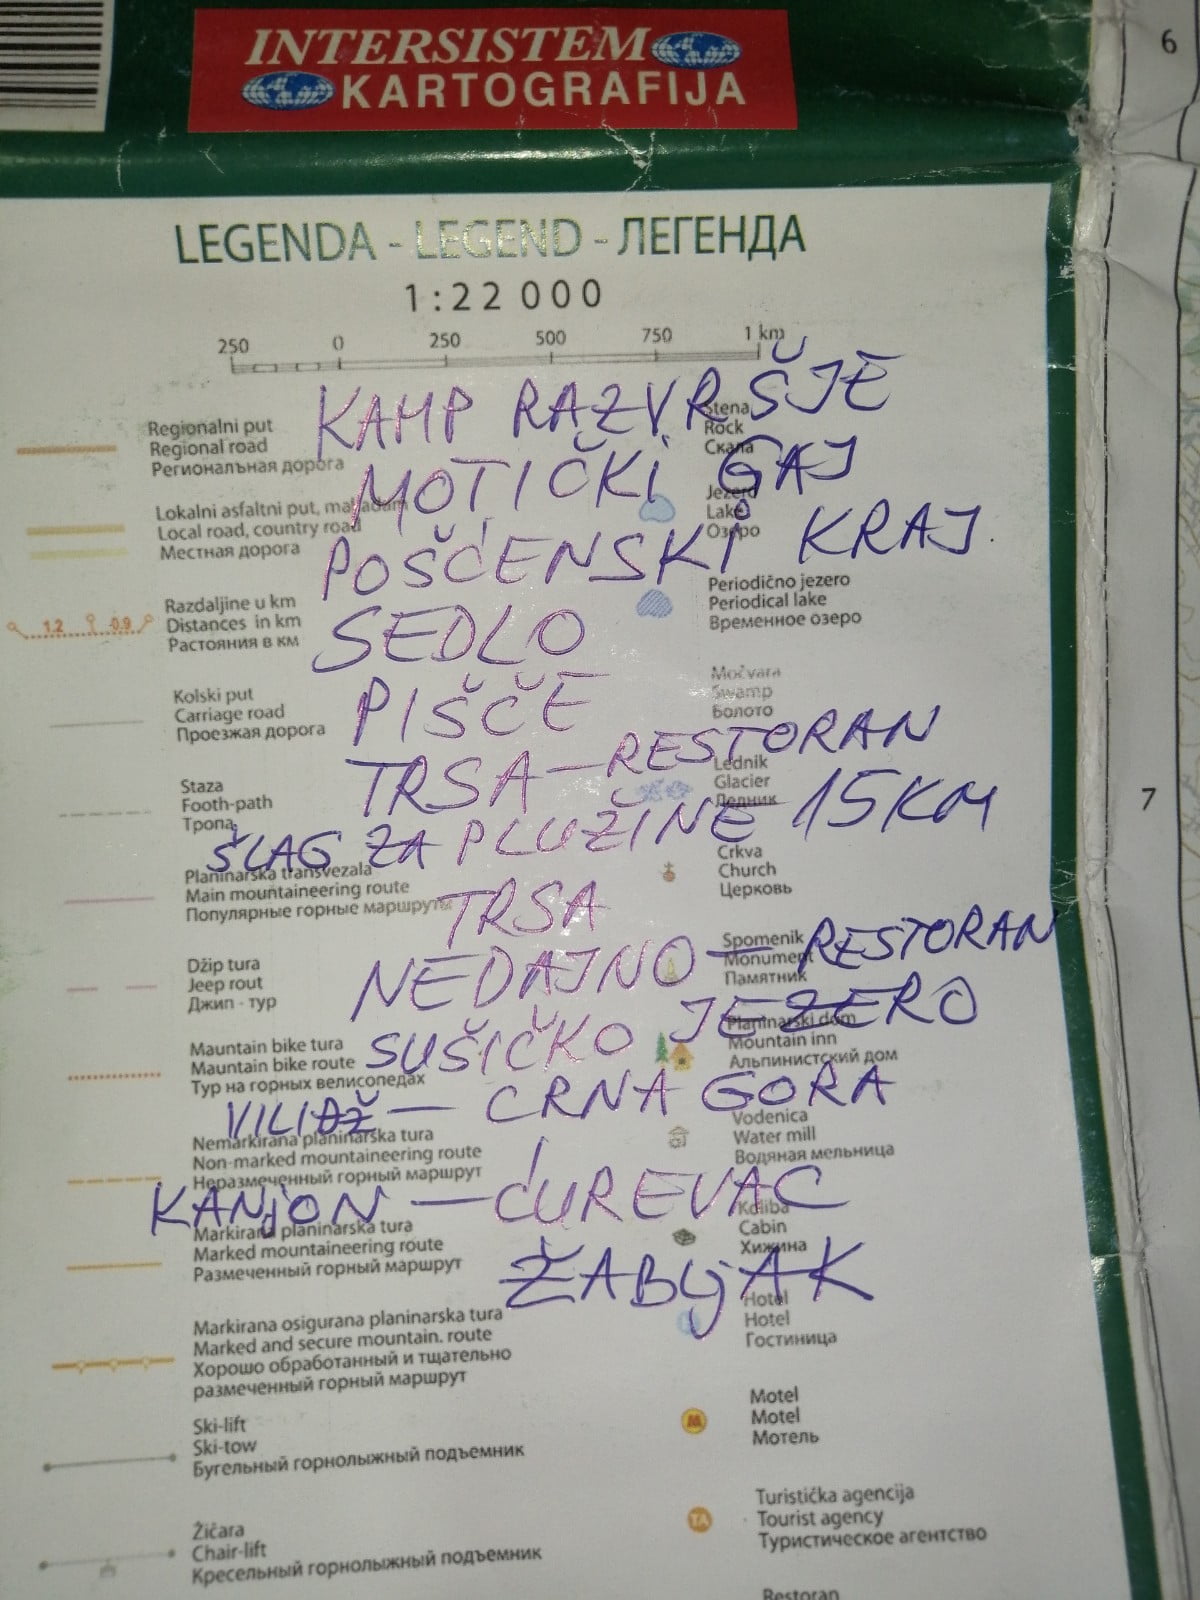 INTERSISTEM
KARTOGRAFIJA
6
LEGENDA - LEGEND - ЛЕГЕНДА
1:22 000
250 0 250 500 750 1 km
KAMP RAZVRŠJE
Regionalni put
Regional road
Региональная дорога
Stena
Rock
Скала
MOTIČKI GAJ
Lokalni asfaltni put,
Local road, country road
Местная дорога
Jezero
Lake
Озеро
POŠĆENSKI KRAJ
1.2 0.9
Razdaljine u km
Distances in km
Растояния в км
Periodično jezero
Periodical lake
Временное озеро
SEDLO
Kolski put
Carriage road
Проезжая дорога
Močvara
Swamp
Болото
PIŠČE
TRSA — RESTORAN
Staza
Footh-path
Тропа
Lednik
Glacier
Ледник
7
ŠLAG ZA PLUŽINE 15KM
Planinarska transvezala
Main mountaineering route
Популярные горные маршруты
Crkva
Church
Церковь
TRSA
NEDAJNO — RESTORAN
Džip tura
Jeep rout
Джип - тур
Spomenik
Monument
Памятник
SUŠIČKO JEZERO
Mauntain bike tura
Mauntain bike route
Тур на горных велисопедах
Planinarski dom
Mountain inn
Альпинистский дом
VILIDŽ — CRNA GORA
Nemarkirana planinarska tura
Non-marked mountaineering route
Неразмеченный горный маршрут
Vodenica
Water mill
Водяная мельница
KANJON — ĆUREVAC
Markirana planinarska tura
Marked mountaineering route
Размеченный горный маршрут
Koliba
Cabin
Хижина
ŽABLJAK
Markirana osigurana planinarska tura
Marked and secure mountain. route
Хорошо обработанный и тщательно
размеченный горный маршрут
Hotel
Hotel
Гостиница
Ski-lift
Ski-tow
Бугельный горнолыжный подъемник
M
Motel
Motel
Мотель
Žičara
Chair-lift
Кресельный горнолыжный подъемник
TA
Turistička agencija
Tourist agency
Туристическое агентство
Restoran